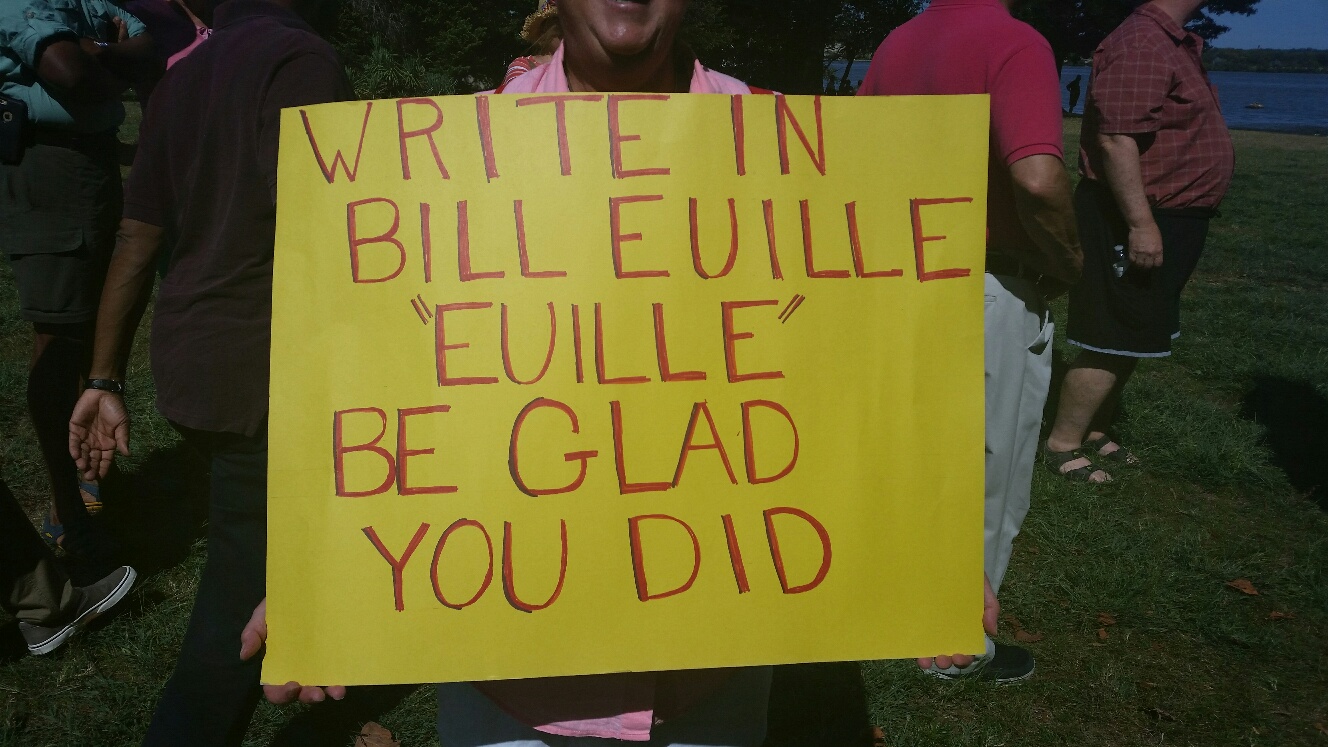 WRITE IN
BILL EUILLE
"EUILLE"
BE GLAD
YOU DID